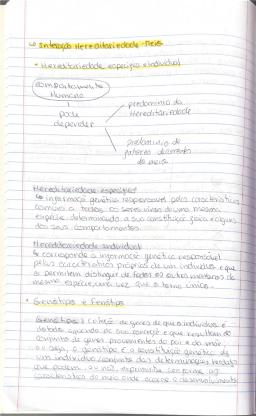 ↳ Interação Hereditariedade - Meio
• Hereditariedade específica e individual
Comportamento
Humano
pode
depender
predomínio da
Hereditariedade
Predomínio de
fatores do meio
Hereditariedade específica
↳ informação genética responsável pelas características
comuns a todos os seres vivos de uma mesma
espécie determinando a sua constituição física e alguns
dos seus comportamentos.
Hereditariedade individual
↳ corresponde à informação genética responsável
pelas características próprias de um indivíduo e que
o permitem distinguir de todos os outros membros da
mesma espécie, uma vez que o torna único.
• Genótipo e fenótipo
Genótipo: coleção de genes de que o indivíduo é
dotado aquando da sua conceção e que resultam do
conjunto de genes provenientes do pai e da mãe,
ou seja, o genótipo é a constituição genética de
um indivíduo (conjunto das determinações herdadas
que podem, ou não, exprimir-se conforme as
características do meio onde ocorre o desenvolvimento